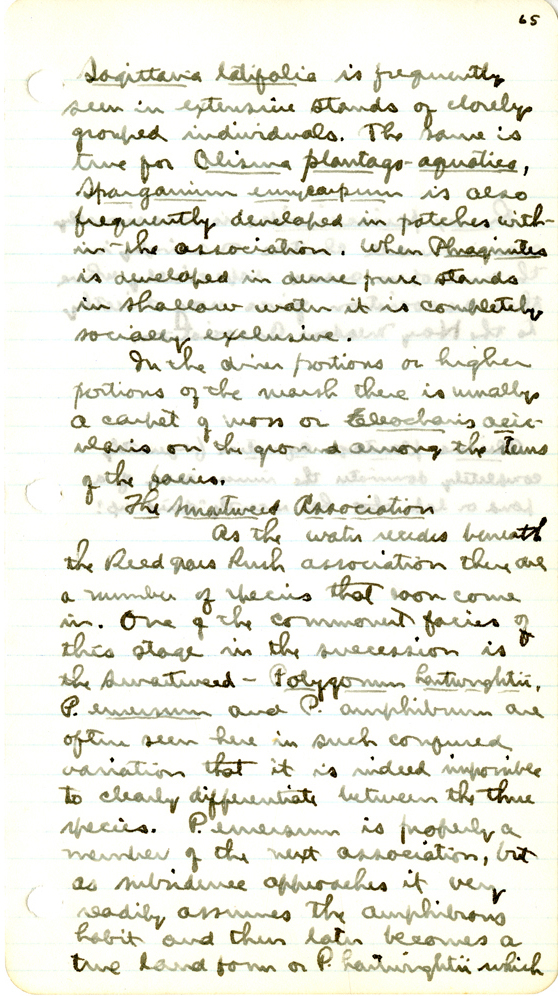 65
Sagittaria latifolia is frequently
seen in extensive stands of closely
grouped individuals. The same is
true for Alisma plantago-aquatica,
Sparganium eurycarpum is also
frequently developed in patches with-
in the association. When Phragmites
is developed in dense pure stands
in shallow water it is completely
socially exclusive.
In the drier portions or higher
portions of the marsh there is usually
a carpet of moss or Eleocharis acic-
ularis on the ground among the stems
of the facies.
The Smartweed Association
As the water recedes beneath
the Reed grass Rush association there are
a number of species that soon come
in. One of the commonest facies of
this stage in the succession is
the smartweed - Polygonum hartwrightii,
P. emersum and P. amphibium are
often seen here in such confused
variation that it is indeed impossible
to clearly differentiate between the three
species. P. emersum is properly a
member of the next association, but
as subsidence approaches it very
readily assumes the amphibious
habit and then later becomes a
true land form or P. hartwrightii which